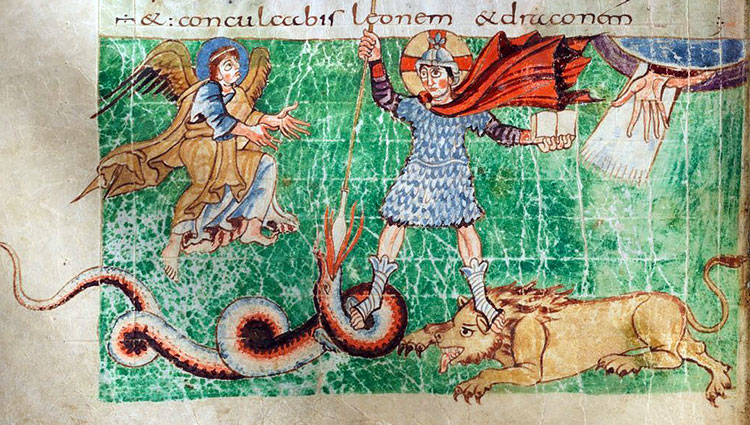 & : conculcabis leonem & draconem